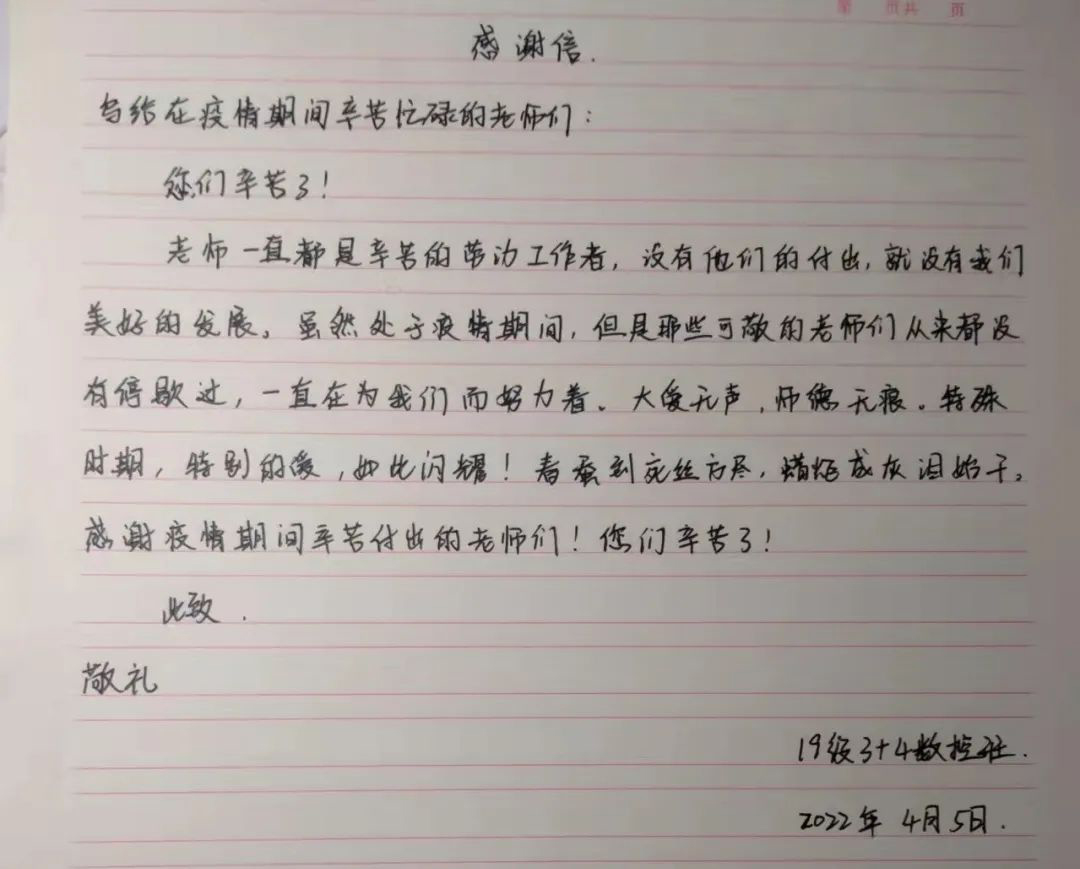 第 页共 页
感谢信.
写给在疫情期间辛苦忙碌的老师们:
您们辛苦了!
老师一直都是辛苦的劳动工作者,没有他们的付出,就没有我们
美好的发展。虽然处于疫情期间,但是那些可敬的老师们从来都没
有停歇过,一直在为我们而努力着。大爱无声,师德无痕。特殊
时期,特别的爱,如此闪耀!春蚕到死丝方尽,蜡炬成灰泪始干。
感谢疫情期间辛苦付出的老师们!您们辛苦了!
此致.
敬礼
19级3+4数控班.
2022年4月5日.